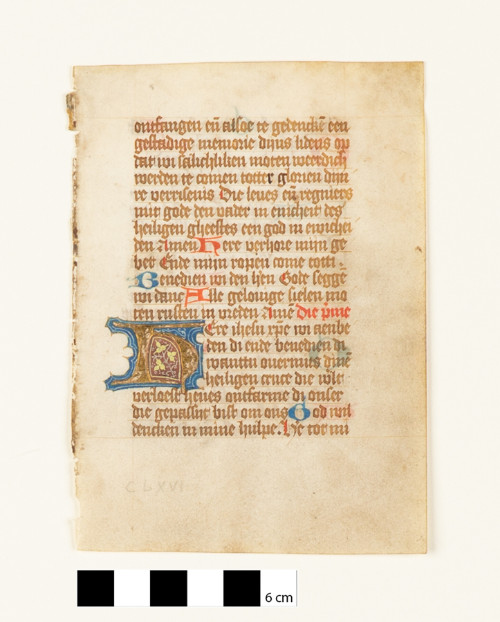 ontfangen eñ alsoe te gedencken een
gestadige memorie dijns lidens op
dat wi salichliken moten weerdich
werden te comen totter glorien dijn
re verrisenis Die leues eñ regniers
mit gode den vader in enicheit des
heiligen gheestes een god in ewichei
den Amen Here verhore mijn ge
bet Ende mijn ropen come totti
Benedien wi den hen Gode segge̅
wi danc Alle gelouige sielen mo
ten rusten in vreden Ame̅ Die p̅me
Ere ihesu xp̅e wi aenbe
den di ende benedien di
wanttu ouermits dine̅
heiligen cruce die w̅lt
verloest heues ontfarme di onser
die gepassijt bist om ons God wil
dencken in mine hulpe. He tot mi
C b XVI
6 cm